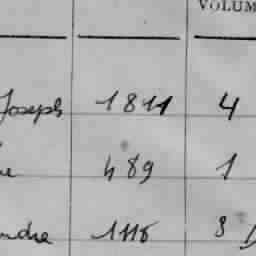 VOLUM
Joseph 1811 4
489 1
1116 8